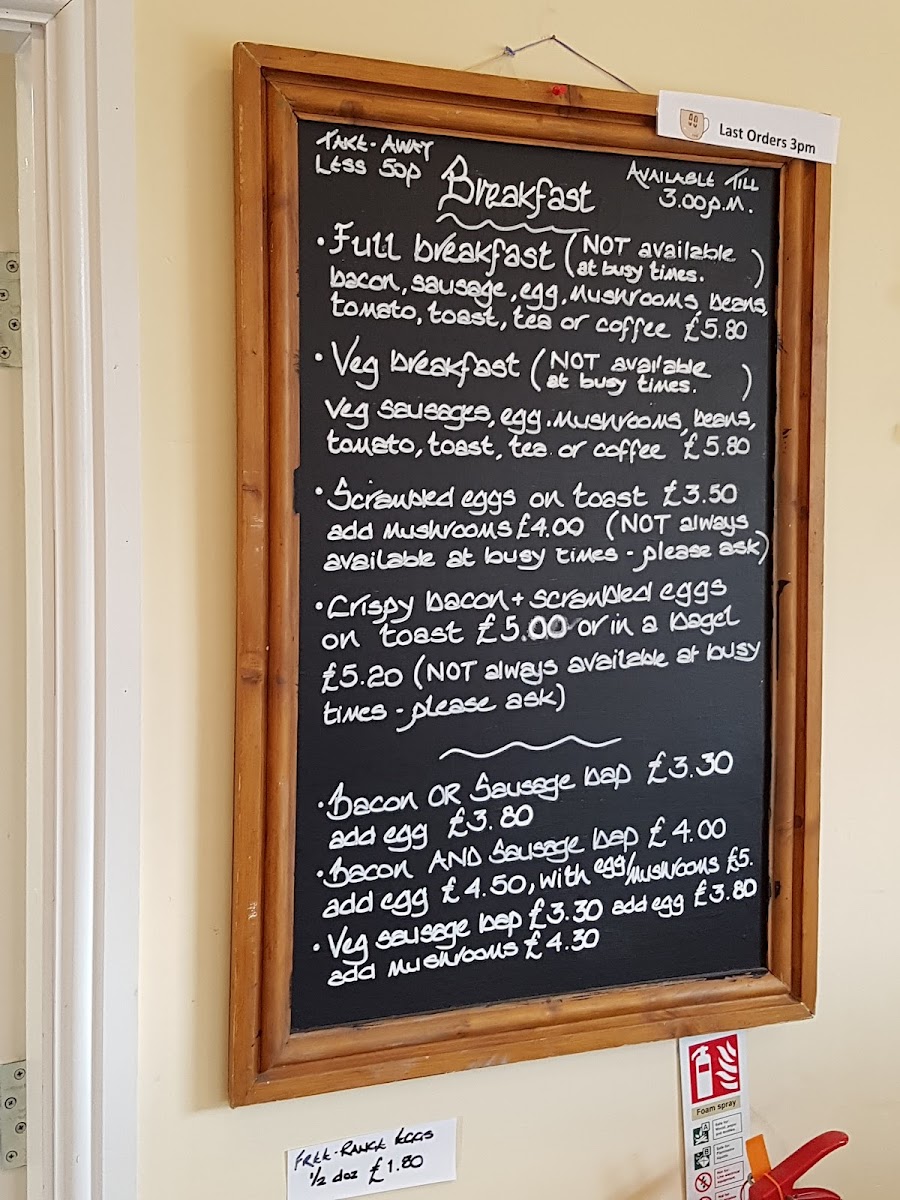 Last Orders 3pm
TAKE-AWAY
LESS 50p
Breakfast
AVAILABLE TILL
3.00p.M.
• Full breakfast (NOT available
at busy times. )
bacon, sausage, egg, mushrooms, beans,
tomato, toast, tea or coffee £5.80
• Veg breakfast (NOT available
at busy times. )
Veg sausages, egg, mushrooms, beans,
tomato, toast, tea or coffee £5.80
• Scrambled eggs on toast £3.50
add mushrooms £4.00 (NOT always
available at busy times - please ask)
• Crispy bacon + scrambled eggs
on toast £5.00 or in a bagel
£5.20 (NOT always available at busy
times - please ask)
• Bacon OR Sausage bap £3.30
add egg £3.80
• Bacon AND Sausage bap £4.00
add egg £4.50, with egg/mushrooms £5.
• Veg sausage bap £3.30 add egg £3.80
add mushrooms £4.30
FREE-RANGE EGGS
½ doz £1.80
Foam spray
A
B